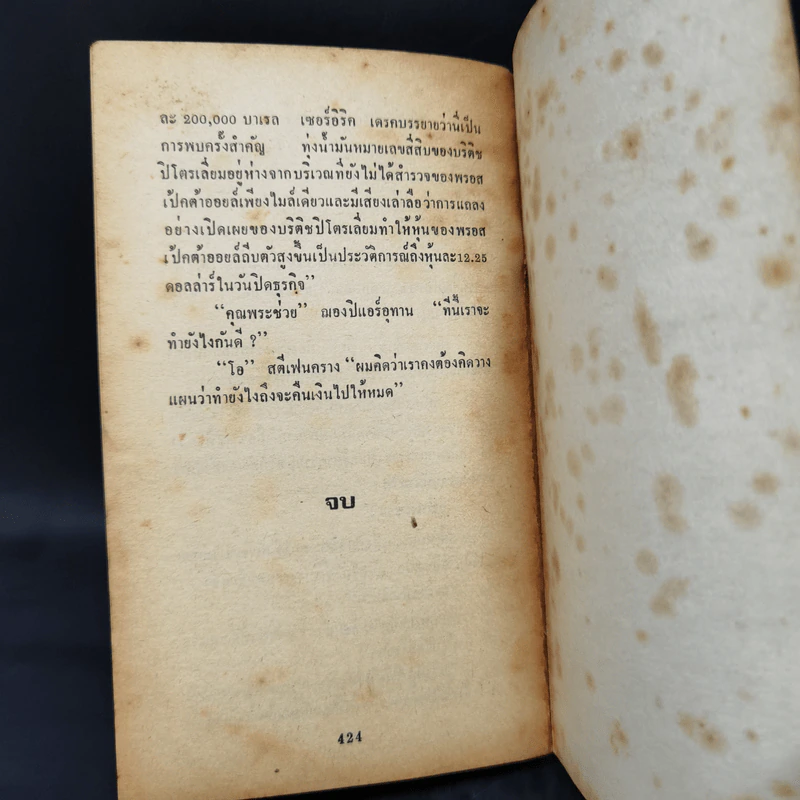 ละ 200,000 บาเรล เซอร์อิริค เดรคบรรยายว่านี่เป็น
การพบครั้งสำคัญ ทุ่งน้ำมันหมายเลขสี่สิบของบริติช
ปิโตรเลี่ยมอยู่ห่างจากบริเวณที่ยังไม่ได้สำรวจของพรอส
เป้คต้าออยล์เพียงไมล์เดียวและมีเสียงเล่าลือว่าการแถลง
อย่างเปิดเผยของบริติชปิโตรเลี่ยมทำให้หุ้นของพรอส
เป้คต้าออยล์ถีบตัวสูงขึ้นเป็นประวัติการณ์ถึงหุ้นละ12.25
ดอลล่าร์ในวันปิดธุรกิจ”
“คุณพระช่วย” ฌองปิแอร์อุทาน “ทีนี้เราจะ
ทำยังไงกันดี ?”
“โอ” สตีเฟนคราง “ผมคิดว่าเราคงต้องคิดวาง
แผนว่าทำยังไงถึงจะคืนเงินไปให้หมด”
จบ
424